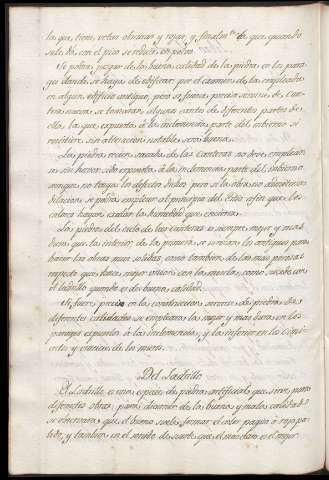 la que tiene vetas obscuras y rojas, y finalm.te la que quando
sale de con el pico se reduce en polvo.
Se podrá juzgar de la buena calidad de la piedra en los para
ges donde se haya de edificar por el examen de las empleadas
en algun edificio antiguo, pero si fuera preciso servirse de Can
tera nueva, se tomaran algunos cantos de diferentes partes de
ella, los que, expuestos à la inclemencia parte del Invierno si
resistiere sin alteracion notable, sera buena.
Las piedras recien sacadas de las Canteras no deve emplear
se sin haver sido expuestas à la inclemencia parte del invierno
aunque no tengan los defectos dichos pero si la obra no admitiere
dilacion, se podrá emplear al principio del Estio afin que los
calores hagan exalar la humedad que encierra.
Las piedras del cielo de las Canteras es siempre mejor y mas
dura que la interior de la primera se servian los antiguos para
hacer las obras mas solidas, como tambien de las mas porosas
respecto que hace mejor union con la mezcla, como sucede con
el ladrillo quando es de buena calidad.
Si fuere preciso en la construccion servirse de piedras de
diferentes calidades se empleara la mejor y mas dura en los
parages expuestos à la Inclemencia, y la inferior en los Cimi
entos y macizos de los muros.
Del Ladrillo
El Ladrillo es una especie de piedra artificial que sirve para
diferentes obras; para discernir de las buenas y malas calidades
se observara, que el bueno suele formar el color pagizo ó rojo pa
lido, y tambien en el sonido de suerte que el mas claro es el mejor